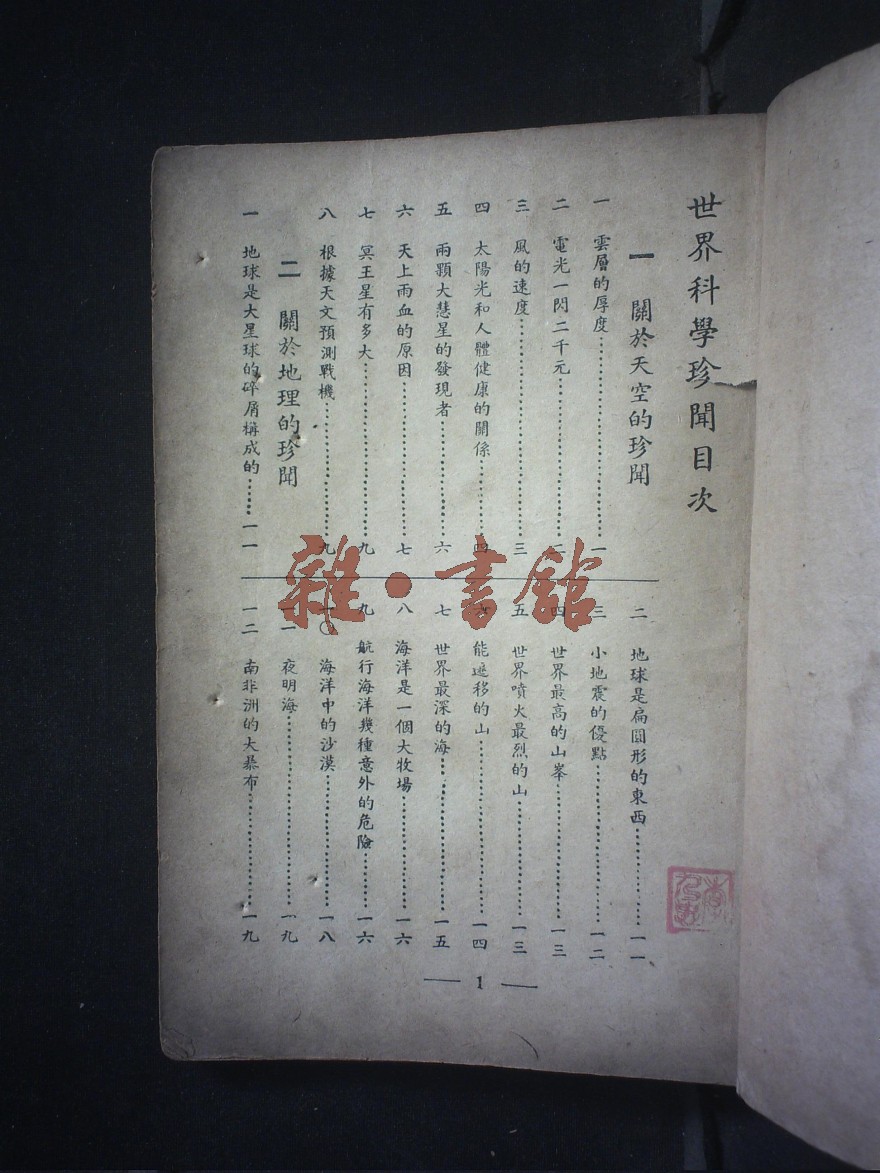 世界科學珍聞目次
一 關於天空的珍聞
一 雲層的厚度……一
二 電光一閃二千元……二
三 風的速度……三
四 太陽光和人體健康的關係……四
五 兩顆大慧星的發現者……六
六 天上雨血的原因……七
七 冥王星有多大……九
八 根據天文預測戰機……九
二 關於地理的珍聞
一 地球是大星球的碎屑構成的……一一
二 地球是扁圓形的東西……一一
三 小地震的優點……一二
四 世界最高的山峯……一三
五 世界噴火最烈的山……一三
六 能遷移的山……一四
七 世界最深的海……一五
八 海洋是一個大牧場……一六
九 航行海洋幾種意外的危險……一六
一〇 海洋中的沙漠……一八
一一 夜明海……一九
一二 南非洲的大瀑布……一九
— 1 —
雜·書館